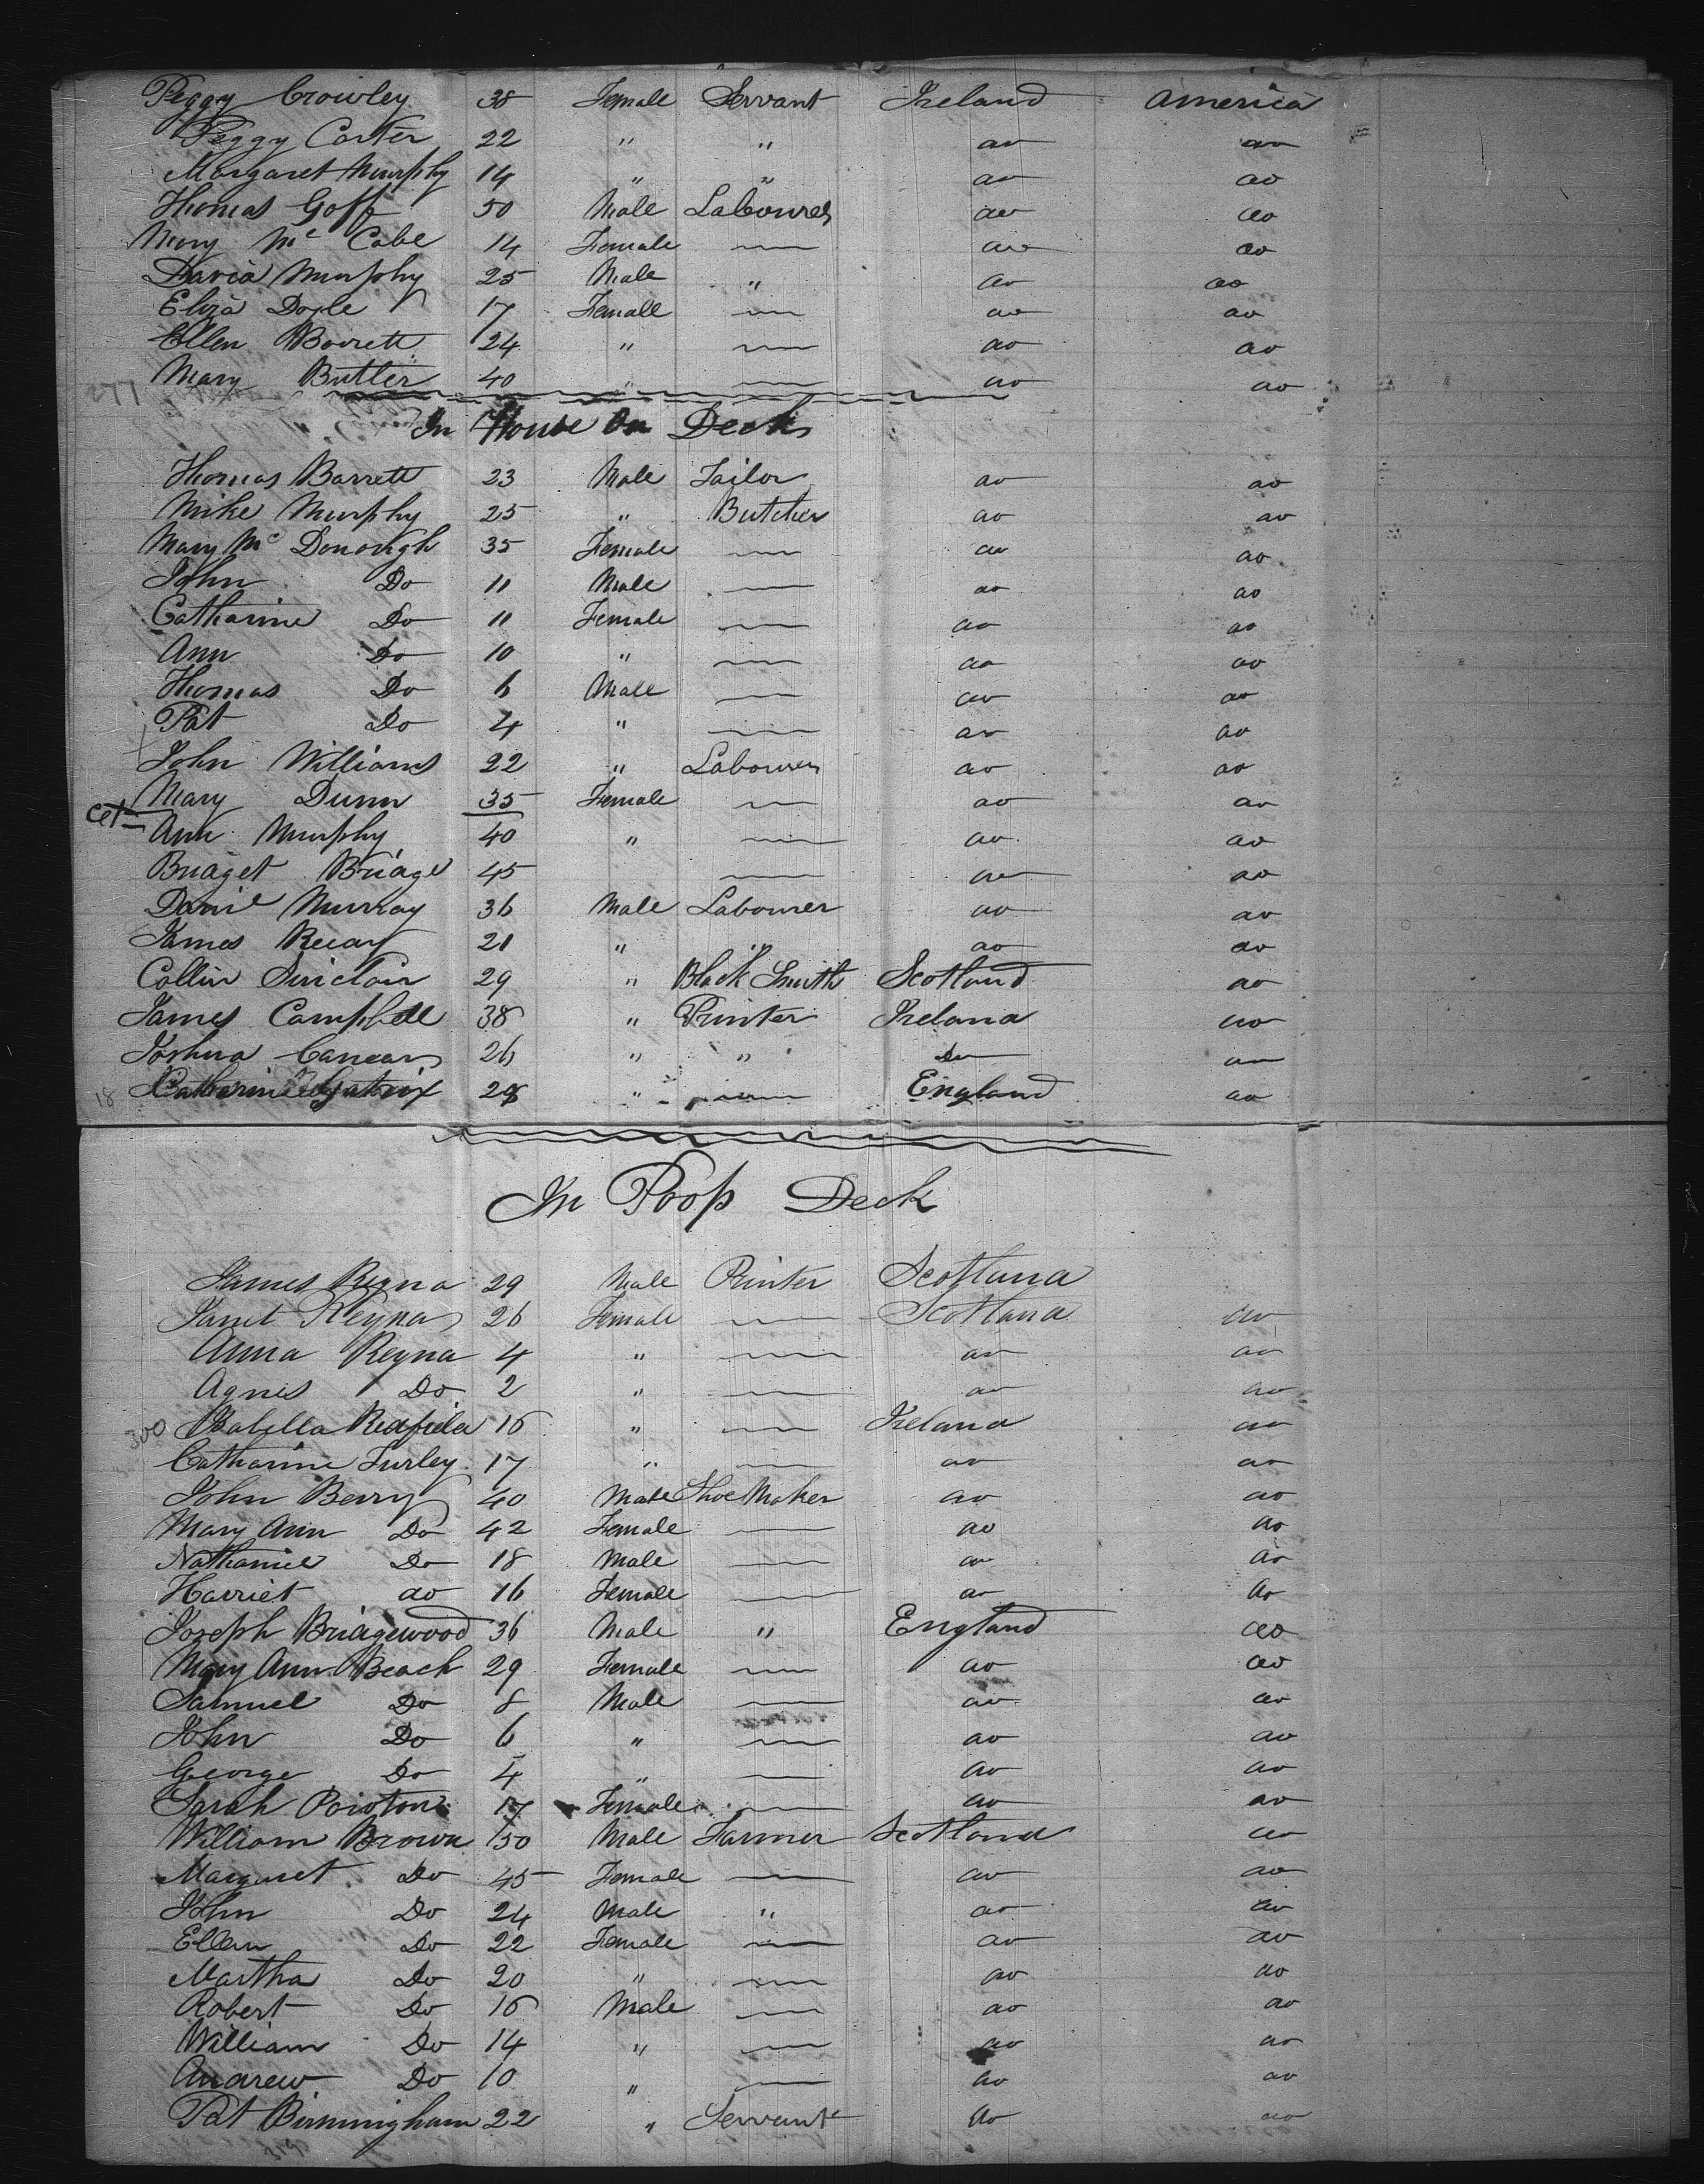 Peggy Crowley 38 Female Servant Ireland America
Peggy Carter 22 " " do do
Margaret Murphy 14 " " do do
Thomas Goff 50 Male Labourer do do
Mary Mc Cabe 14 Female — do do
David Murphy 25 Male " do do
Eliza Doyle 17 Female — do do
Ellen Barrett 24 " — do do
277 Mary Butler 40 " — do do
In House On Deck
Thomas Barrett 23 Male Tailor do do
Mike Murphy 25 " Butcher do do
Mary Mc Donough 35 Female — do do
John Do 11 Male — do do
Catharine Do 11 Female — do do
Ann Do 10 " — do do
Thomas Do 6 Male — do do
Pat Do 4 " — do do
John Williams 22 " Labourer do do
Mary Dunn 35 Female — do do
Ann Murphy 40 " — do do
Bridget Bridge 45 — do do
Danie Murray 36 Male Labourer do do
James 21 " " do do
Collin Sinclair 29 " Black Smith Scotland do
James Campbell 38 " Printer Ireland do
Joshua 26 " " Do do
18 Catharine 28 " — England do
In Poop Deck
James Reyna 29 Male Printer Scotland
Janet Reyna 26 Female — Scotland do
Anna Reyna 4 " — do do
Agnes Do 2 " — do do
300 Isabella Redfield 16 " — Ireland do
Catharine Turley 17 " — do do
John Berry 40 Male Shoe Maker do do
Mary Ann Do 42 Female — do do
Nathaniel Do 18 Male — do do
Harriet do 16 Female — do do
Joseph Bridgewood 36 Male " England do
Mary Ann Beach 29 Female — do do
Samuel Do 8 Male — do do
John Do 6 " — do do
George Do 4 " — do do
Sarah 17 Female — do do
William Brown 50 Male Farmer Scotland do
Margaret Do 45 Female — do do
John Do 24 Male " do do
Ellen Do 22 Female — do do
Martha Do 20 " — do do
Robert Do 16 Male — do do
William Do 14 " — do do
Andrew Do 10 " — do do
Pat Birmingham 22 " Servant do do